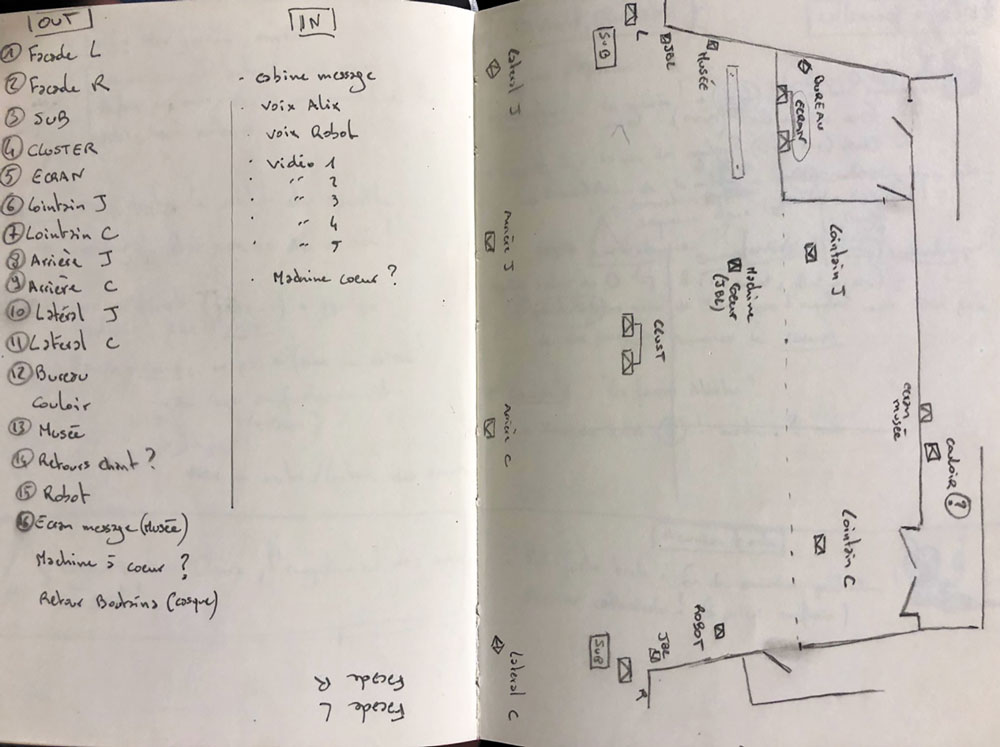 OUT
① Facade L
② Facade R
③ SUB
④ CLUSTER
⑤ ECRAN
⑥ Lointain J
⑦ Lointain C
⑧ Arrière J
⑨ Arrière C
⑩ Latéral J
⑪ Lateral C
⑫ Bureau
Couloir
⑬ Musée
⑭ Retours chant ?
⑮ Robot
⑯ Ecran message (Musée)
Machine à coeur ?
Retour Boatrins (casque)
IN
- cabine message
- voix Alix
- voix Robot
- vidéo 1
- " 2
- " 3
- " 4
- " 5
- Machine coeur ?
Facade L
Facade R
Lateral J
Arrière J
Arrière C
Lateral C
SUB
L
JBL
Musée
BUREAU
ECRAN
Lointain J
Machine
Coeur
(JBL)
CLUST
ecran
musée
couloir ?
Lointain C
ROBOT
JBL
SUB
R